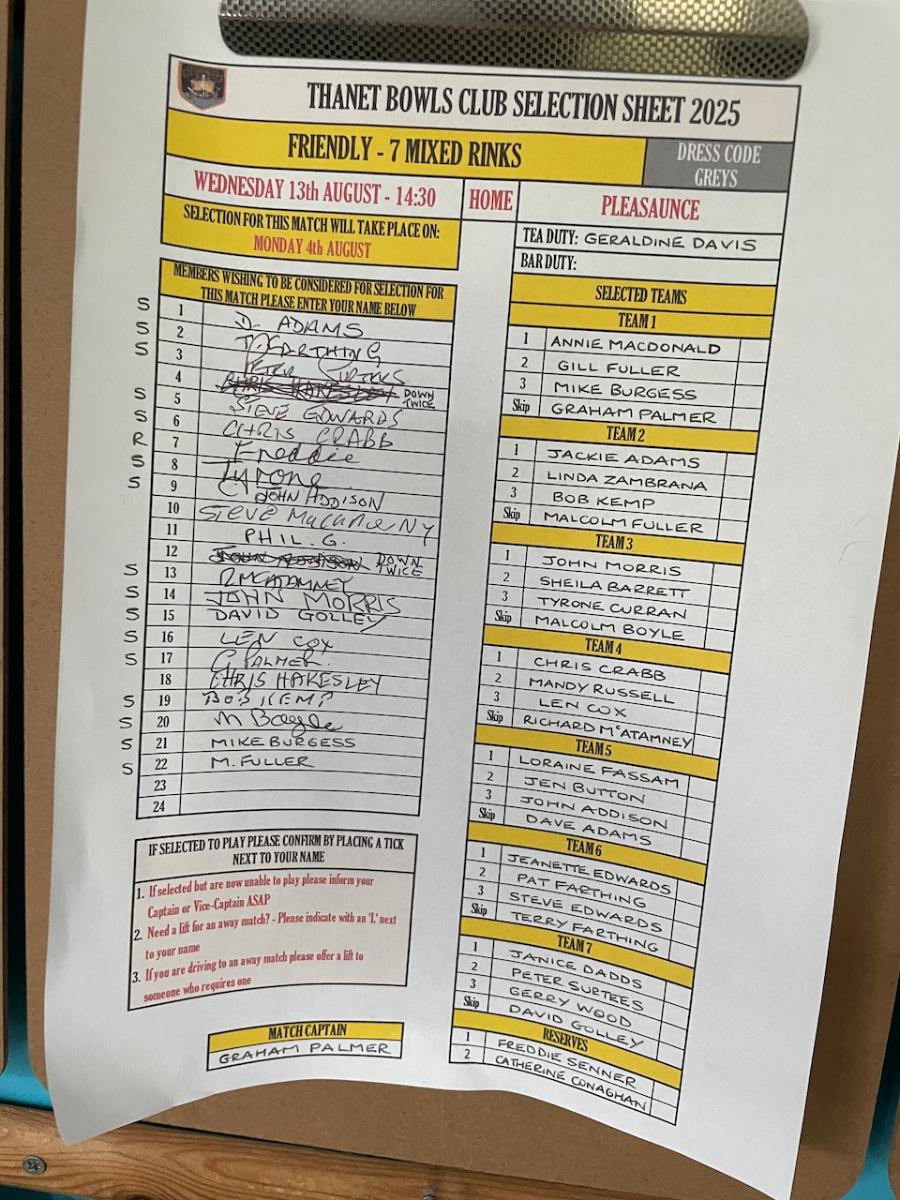 THANET BOWLS CLUB SELECTION SHEET 2025
FRIENDLY - 7 MIXED RINKS
DRESS CODE
GREYS
WEDNESDAY 13th AUGUST - 14:30
HOME
PLEASAUNCE
SELECTION FOR THIS MATCH WILL TAKE PLACE ON:
MONDAY 4th AUGUST
TEA DUTY: GERALDINE DAVIS
BAR DUTY:
MEMBERS WISHING TO BE CONSIDERED FOR SELECTION FOR
THIS MATCH PLEASE ENTER YOUR NAME BELOW
S 1 D. ADAMS
S 2 T FARTHING
S 3
4 CHRIS HAKESLEY DOWN TWICE
S 5 STEVE EDWARDS
S 6 CHRIS CRABB
R 7 Freddie
S 8 Tyrone
S 9 JOHN ADDISON
10 STEVE
11 PHIL. G.
12 JOHN ADDISON DOWN TWICE
S 13 R MCATAMNEY
S 14 JOHN MORRIS
S 15 DAVID GOLLEY
S 16 LEN COX
S 17 G PALMER.
18 CHRIS HAKESLEY
S 19 BOB KEMP
S 20 M Boyle
S 21 MIKE BURGESS
S 22 M. FULLER
23
24
IF SELECTED TO PLAY PLEASE CONFIRM BY PLACING A TICK
NEXT TO YOUR NAME
1. If selected but are now unable to play please inform your
Captain or Vice-Captain ASAP
2. Need a lift for an away match? - Please indicate with an 'L' next
to your name
3. If you are driving to an away match please offer a lift to
someone who requires one
MATCH CAPTAIN
GRAHAM PALMER
SELECTED TEAMS
TEAM 1
1 ANNIE MACDONALD
2 GILL FULLER
3 MIKE BURGESS
Skip GRAHAM PALMER
TEAM 2
1 JACKIE ADAMS
2 LINDA ZAMBRANA
3 BOB KEMP
Skip MALCOLM FULLER
TEAM 3
1 JOHN MORRIS
2 SHEILA BARRETT
3 TYRONE CURRAN
Skip MALCOLM BOYLE
TEAM 4
1 CHRIS CRABB
2 MANDY RUSSELL
3 LEN COX
Skip RICHARD McATAMNEY
TEAM 5
1 LORAINE FASSAM
2 JEN BUTTON
3 JOHN ADDISON
Skip DAVE ADAMS
TEAM 6
1 JEANETTE EDWARDS
2 PAT FARTHING
3 STEVE EDWARDS
Skip TERRY FARTHING
TEAM 7
1 JANICE DADDS
2 PETER SURTEES
3 GERRY WOOD
Skip DAVID GOLLEY
RESERVES
1 FREDDIE SENNER
2 CATHERINE CONAGHAN